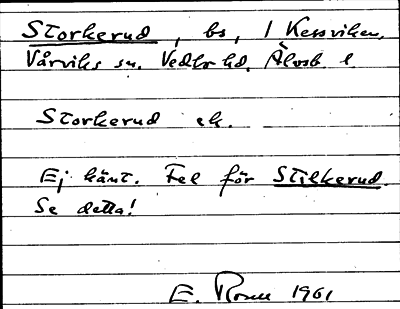 Storkerud, bs, / Kesviken,
Vårviks sn. Vedbo hd. Älvsb. l.
Storkerud ek.
Ej känt. Fel för Stilkerud.
Se detta!
E. Rosen 1961